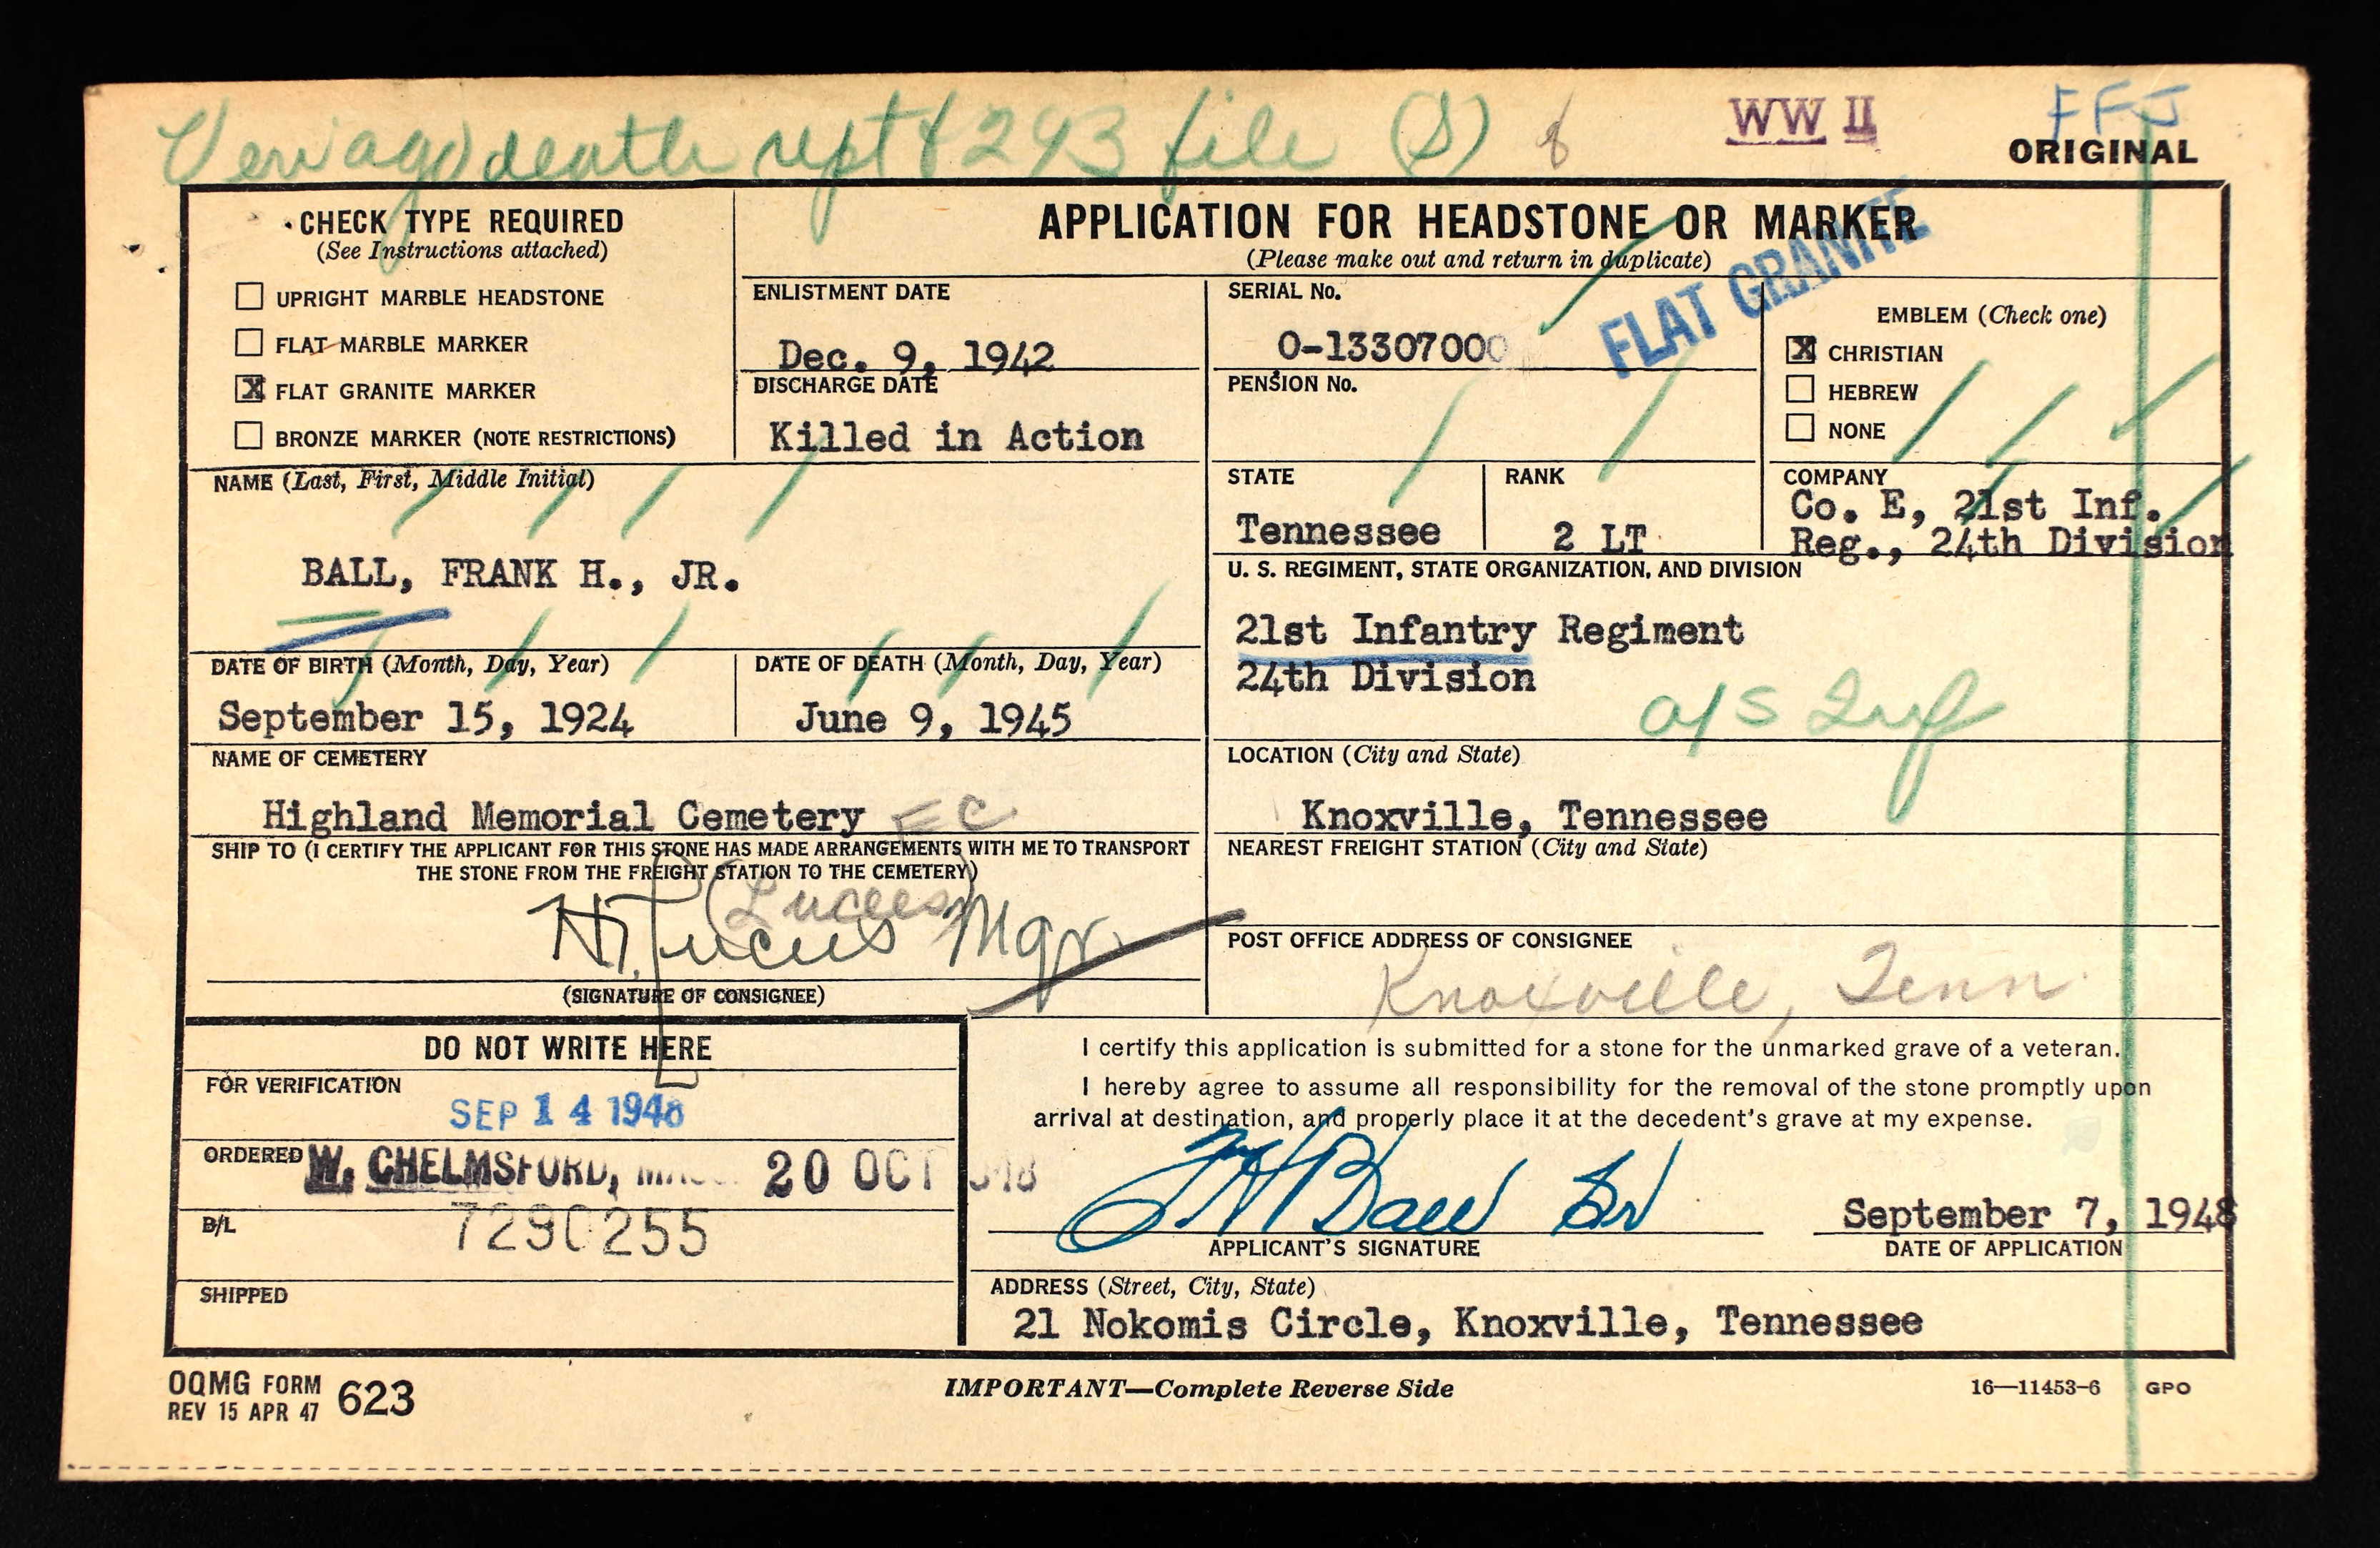 death rept & 293 file (S) 8
WW II
FFJ
ORIGINAL
CHECK TYPE REQUIRED
(See Instructions attached)
☐ UPRIGHT MARBLE HEADSTONE
☐ FLAT MARBLE MARKER
☒ FLAT GRANITE MARKER
☐ BRONZE MARKER (NOTE RESTRICTIONS)
APPLICATION FOR HEADSTONE OR MARKER
(Please make out and return in duplicate)
FLAT GRANITE
ENLISTMENT DATE
Dec. 9, 1942
DISCHARGE DATE
Killed in Action
SERIAL No.
O-1330700
PENSION No.
EMBLEM (Check one)
☒ CHRISTIAN
☐ HEBREW
☐ NONE
NAME (Last, First, Middle Initial)
BALL, FRANK H., JR.
STATE
Tennessee
RANK
2 LT
COMPANY
Co. E, 21st Inf.
Reg., 24th Division
U. S. REGIMENT, STATE ORGANIZATION, AND DIVISION
21st Infantry Regiment
24th Division
o/s Inf
DATE OF BIRTH (Month, Day, Year)
September 15, 1924
DATE OF DEATH (Month, Day, Year)
June 9, 1945
NAME OF CEMETERY
Highland Memorial Cemetery EC
LOCATION (City and State)
Knoxville, Tennessee
SHIP TO (I CERTIFY THE APPLICANT FOR THIS STONE HAS MADE ARRANGEMENTS WITH ME TO TRANSPORT
THE STONE FROM THE FREIGHT STATION TO THE CEMETERY)
Mgr
(SIGNATURE OF CONSIGNEE)
NEAREST FREIGHT STATION (City and State)
POST OFFICE ADDRESS OF CONSIGNEE
Knoxville, Tenn
DO NOT WRITE HERE
FOR VERIFICATION
SEP 14 1948
ORDERED
W. CHELMSFORD, 20 OCT
B/L
7290255
SHIPPED
I certify this application is submitted for a stone for the unmarked grave of a veteran.
I hereby agree to assume all responsibility for the removal of the stone promptly upon
arrival at destination, and properly place it at the decedent's grave at my expense.
F H Ball Sr
APPLICANT'S SIGNATURE
September 7, 1948
DATE OF APPLICATION
ADDRESS (Street, City, State)
21 Nokomis Circle, Knoxville, Tennessee
OQMG FORM 623
REV 15 APR 47
IMPORTANT—Complete Reverse Side
16—11453-6 GPO